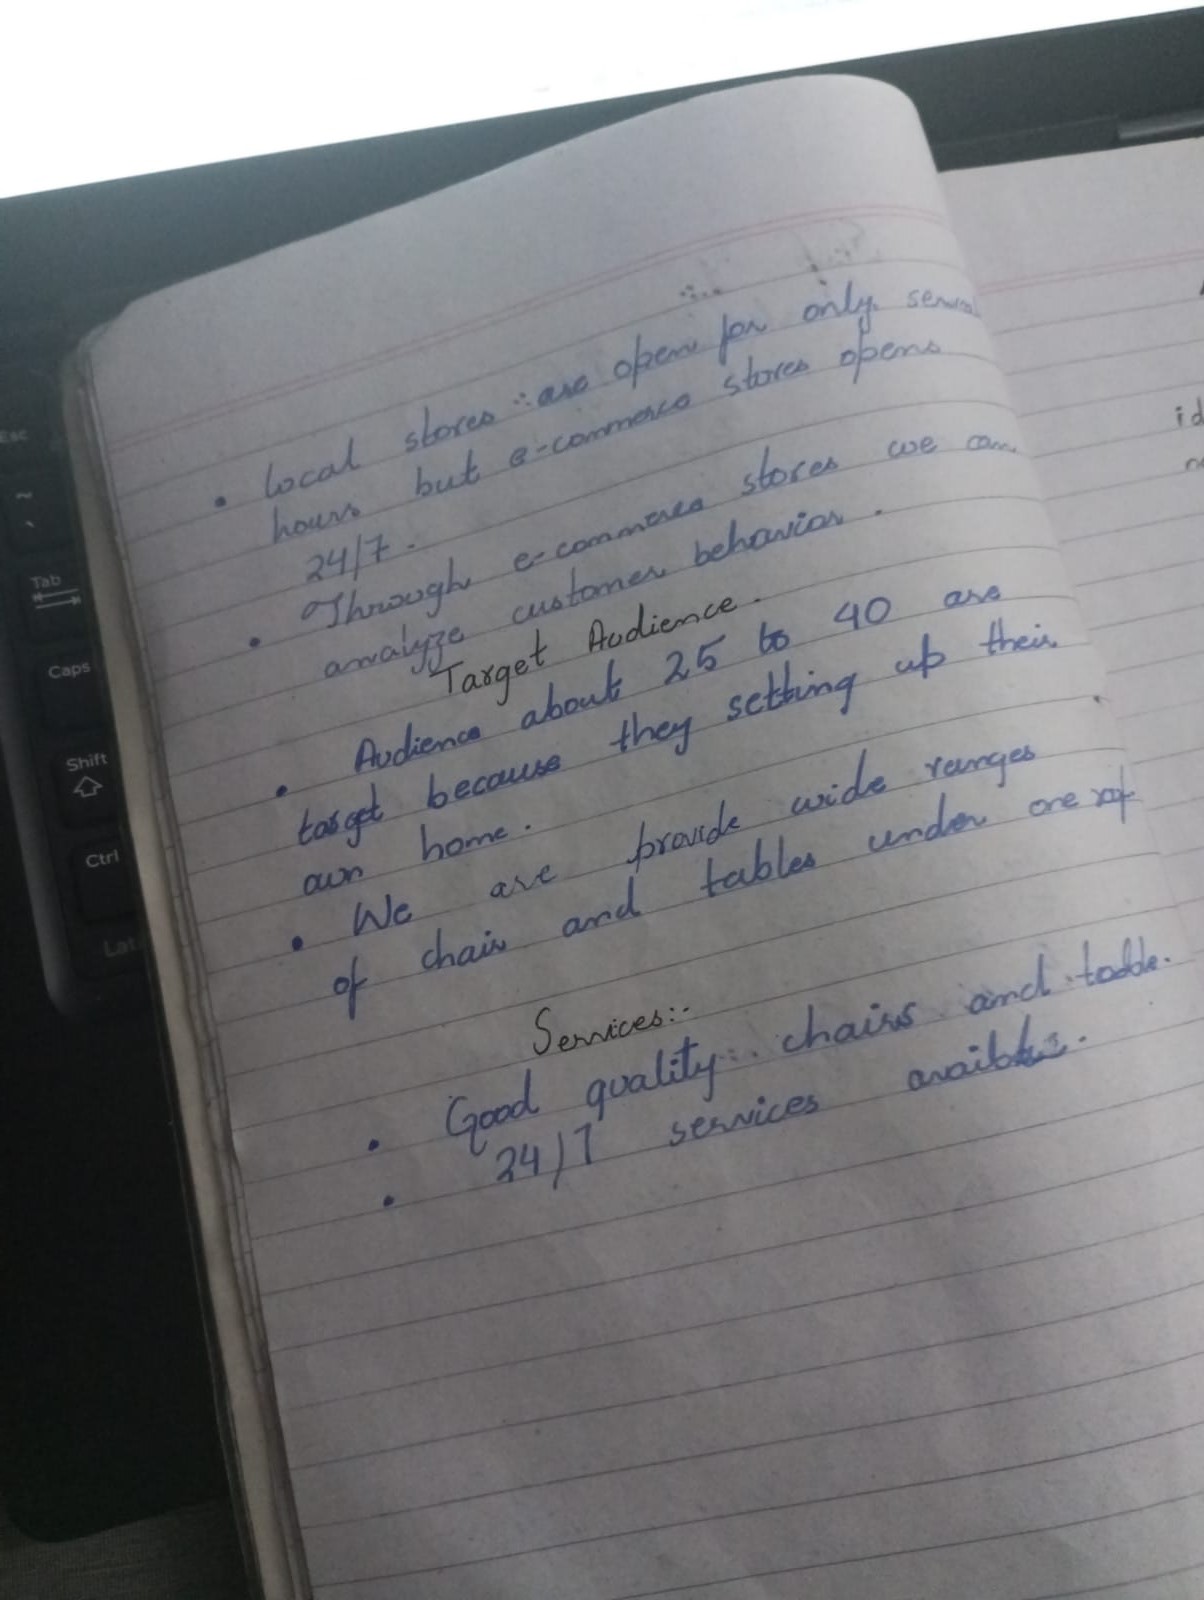 local stores are open for only several
hours but e-commerce stores opens
24/7.
Through e-commerce stores we can
analyze customer behavior.
Target Audience.
Audience about 25 to 40 are
target because they setting up their
own home.
We are provide wide ranges
of chair and tables under one
Services:-
Good quality chairs and table.
24/7 services
Esc
~
`
Tab
Caps
Shift
Ctrl
id